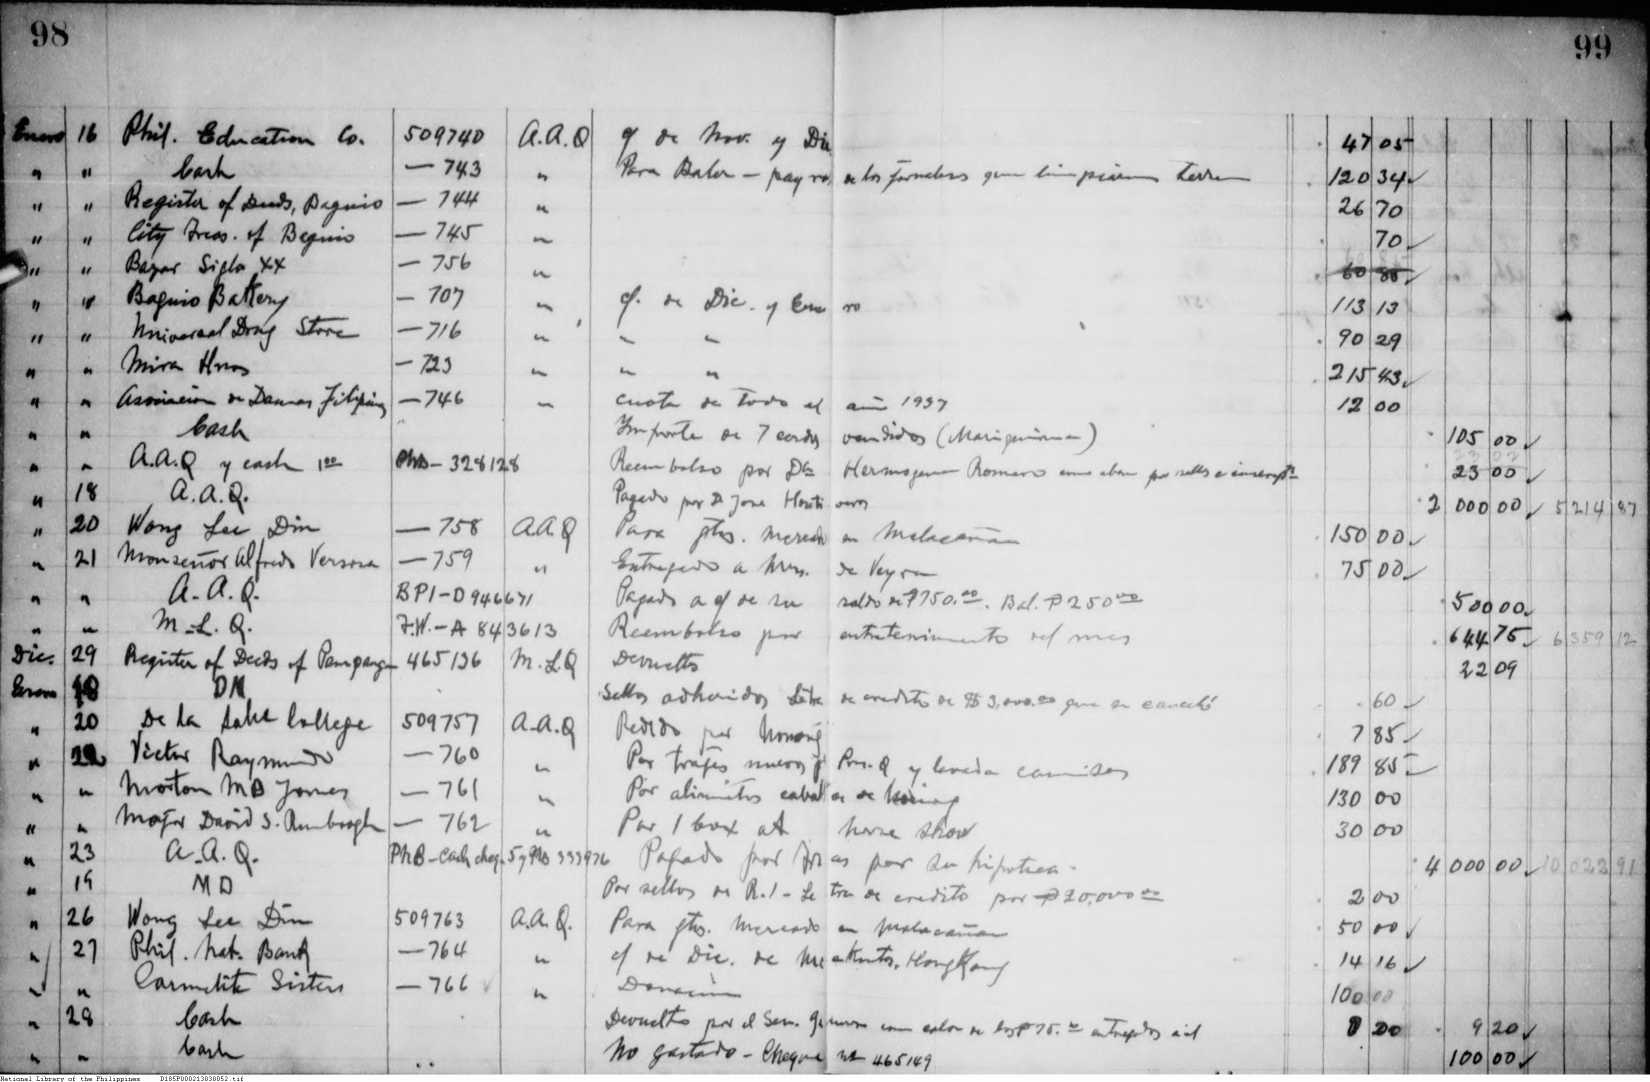 98
99
Enero 16 Phil. Education Co. 509740 A.A.Q c/ de Nov. y Dic 47 05
" " Cash — 743 " Para Baler — pay de los jornaleros que limpiaron 120 34
" " Register of Deeds, Baguio — 744 " 26 70
" " City Treas. of Baguio — 745 " 70
" " Bazar Siglo XX — 756 " 60 85
" " Baguio Battery — 707 " c/. de Dic. y Enero 113 13
" " Universal Drug Store — 716 " " " 90 29
" " Mira Hnos — 723 " " " 215 43
" " Asociacion de Damas Filipinas — 746 " cuota de todo el año 1937 12 00
" " Cash Importe de 7 cerdos vendidos (Mariquina) 105 00
" " A.A.Q y cash 1 00 PNB — 328128 Reembolso por Da Romero por sellos 23 00
" 18 A.A.Q. Pagado por D Jose 2 000 00 5 214 87
" 20 Wong Lee Din — 758 A.A.Q Para gtos. mercado en Malacañan 150 00
" 21 Monseñor Alfredo Versosa — 759 " Entregado a Mrs. de Veyra 75 00
" " A.A.Q. BPI-D 946671 Pagado a c/ de su saldo de ₱750.00. Bal. ₱250 00 500 00
" " M.L.Q. F.W.-A 843613 Reembolso por entretenimiento del mes 644 75 6 359 12
Dic. 29 Register of Deeds of Pampanga 465136 M.L.Q Devuelto 22 09
Enero 18 DN Sellos adheridos Letra de credito de $3,000.00 que se canceló 60
" 20 De La Salle College 509757 A.A.Q Pedido por Nonong 7 85
" 22 Victor Raymundo — 760 " Por trajes nuevos Pres. Q y camisas 189 85
" " Morton M — 761 " Por alimentos de 130 00
" " Major David S. Rumbough — 762 " Por 1 box at horse show 30 00
" 23 A.A.Q. PNB-Cash 333976 Pagado por por su hipoteca. 4 000 00 10 022 91
" 19 MD Por sellos de R.I-Letra de credito por ₱20,000 00 2 00
" 26 Wong Lee Din 509763 A.A.Q. Para gtos. mercado en Malacañan 50 00
" 27 Phil. Nat. Bank — 764 " c/ de Dic. de Hong Kong 14 16
" " Carmelite Sisters — 766 " Donacion 100 00
" 28 Cash Devuelto por el Sen. como de los ₱75.00 entregados 00 9 20
" " Cash No gastado — Cheque No 465149 100 00
National Library of the Philippines D185P000213030052.tif